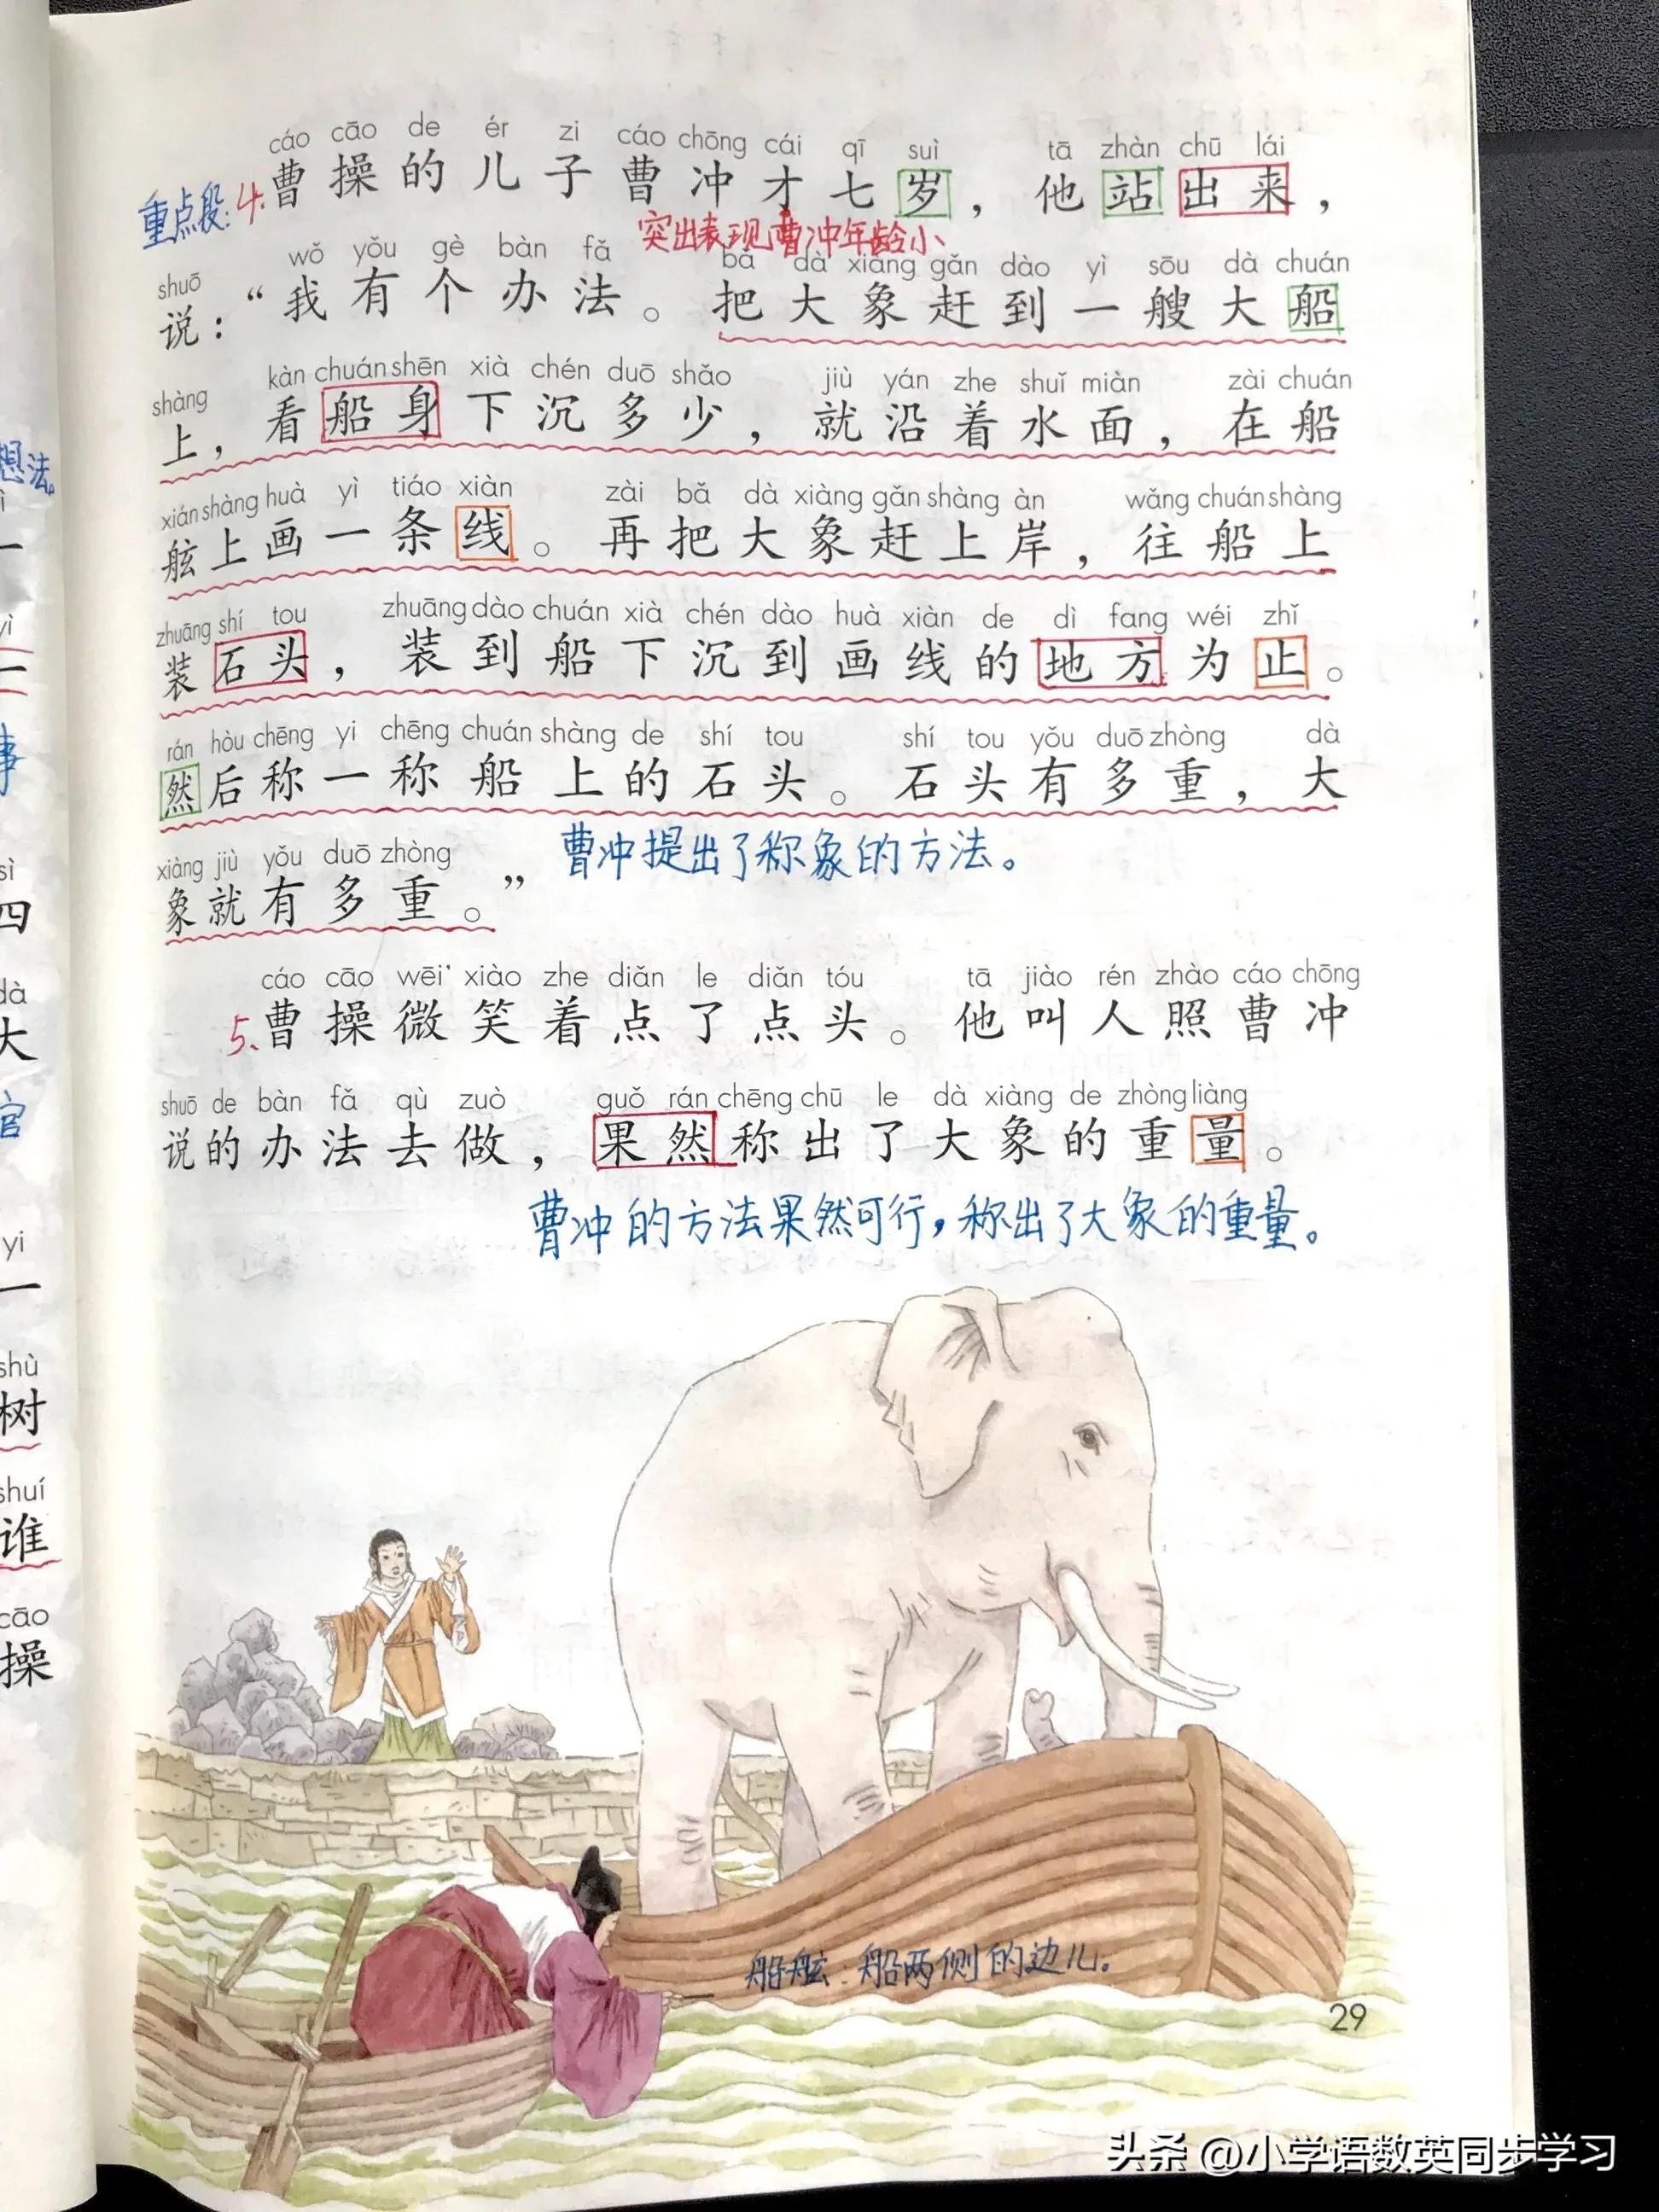 cáo cāo de ér zi cáo chōng cái qī suì tā zhàn chū lái
重点段:4.曹操的儿子曹冲才七岁，他站出来，
突出表现曹冲年龄小
shuō wǒ yǒu gè bàn fǎ bǎ dà xiàng gǎn dào yì sōu dà chuán
说：“我有个办法。把大象赶到一艘大船
shàng kàn chuán shēn xià chén duō shǎo jiù yán zhe shuǐ miàn zài chuán
上，看船身下沉多少，就沿着水面，在船
xián shàng huà yì tiáo xiàn zài bǎ dà xiàng gǎn shàng àn wǎng chuán shàng
舷上画一条线。再把大象赶上岸，往船上
zhuāng shí tou zhuāng dào chuán xià chén dào huà xiàn de dì fang wéi zhǐ
装石头，装到船下沉到画线的地方为止。
rán hòu chēng yi chēng chuán shàng de shí tou shí tou yǒu duō zhòng dà
然后称一称船上的石头。石头有多重，大
xiàng jiù yǒu duō zhòng
象就有多重。”
曹冲提出了称象的方法。
cáo cāo wēi xiào zhe diǎn le diǎn tóu tā jiào rén zhào cáo chōng
5.曹操微笑着点了点头。他叫人照曹冲
shuō de bàn fǎ qù zuò guǒ rán chēng chū le dà xiàng de zhòng liàng
说的办法去做，果然称出了大象的重量。
曹冲的方法果然可行，称出了大象的重量。
船舷:船两侧的边儿。
29
想法。
一
yì
一
事
sì
四
dà
大
官
yi
一
shù
树
shuí
谁
cāo
操
头条 @小学语数英同步学习